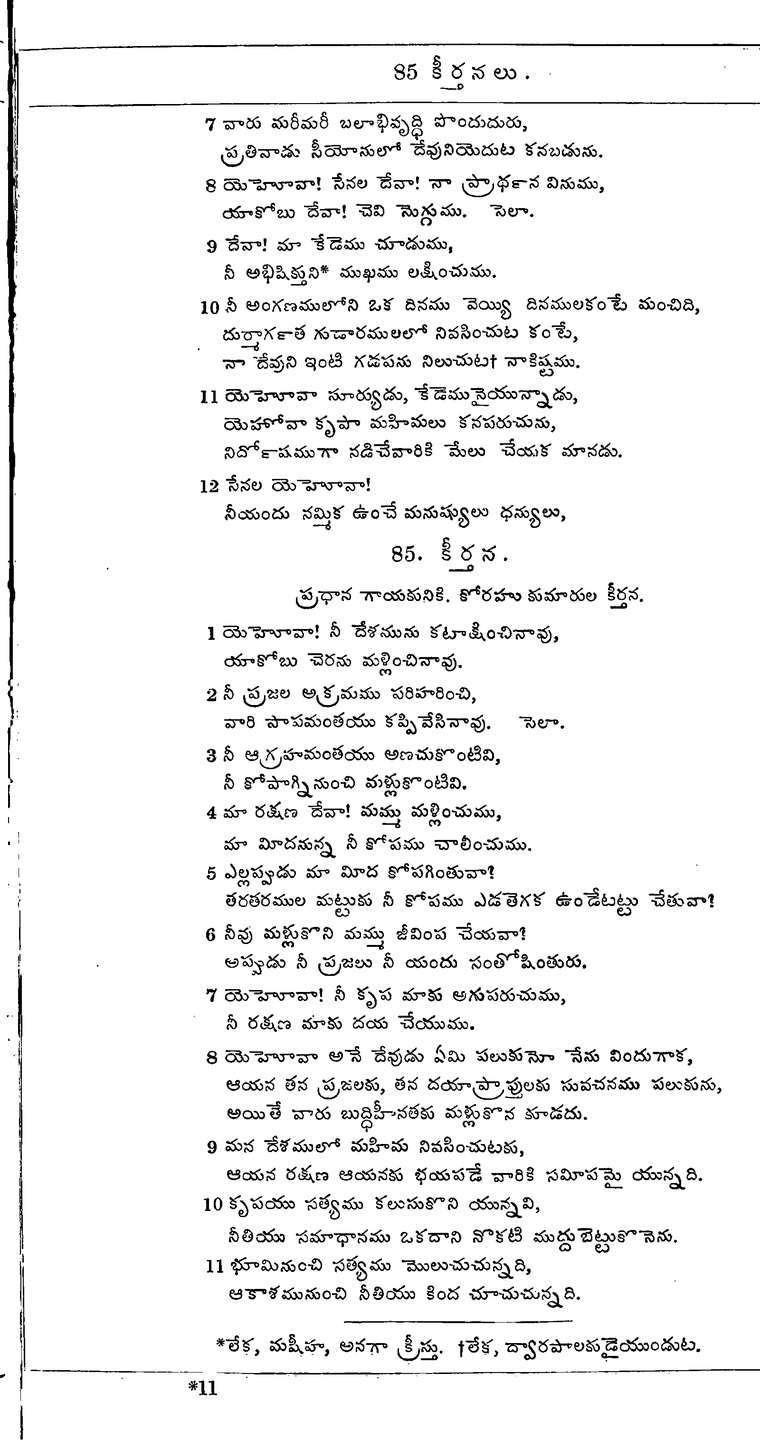 85 కీర్తనలు.
7 వారు మరీమరీ బలాభివృద్ధి పొందుదురు,
ప్రతివాడు సీయోనులో దేవునియెదుట కనబడును.
8 యెహెూవా! సేనల దేవా! నా ప్రార్థన వినుము,
యాకోబు దేవా! చెవి నొగ్గుము. సెలా.
9 దేవా! మా కేడెము చూడుము,
నీ అభిషిక్తుని* ముఖము లక్షించుము.
10 నీ అంగణములోని ఒక దినము వెయ్యి దినములకంటే మంచిది,
దుర్మార్గత గుడారములలో నివసించుట కంటే,
నా దేవుని ఇంటి గడపను నిలుచుట† నాకిష్టము.
11 యెహెూవా సూర్యుడు, కేడెమునైయున్నాడు,
యెహోవా కృపా మహిమలు కనపరుచును,
నిర్దోషముగా నడిచేవారికి మేలు చేయక మానడు.
12 సేనల యెహెూవా!
నీయందు నమ్మిక ఉంచే మనుష్యులు ధన్యులు,
85. కీర్తన.
ప్రధాన గాయకునికి. కోరహు కుమారుల కీర్తన.
1 యెహెూవా! నీ దేశమును కటాక్షించినావు,
యాకోబు చెరను మళ్లించినావు.
2 నీ ప్రజల అక్రమము పరిహరించి,
వారి పాపమంతయు కప్పివేసినావు. సెలా.
3 నీ ఆగ్రహమంతయు అణచుకొంటివి,
నీ కోపాగ్నినుంచి మళ్లుకొంటివి.
4 మా రక్షణ దేవా! మమ్ము మళ్లించుము,
మా మీదనున్న నీ కోపము చాలించుము.
5 ఎల్లప్పుడు మా మీద కోపగింతువా?
తరతరముల మట్టుకు నీ కోపము ఎడతెగక ఉండేటట్టు చేతువా?
6 నీవు మళ్లుకొని మమ్ము జీవింప చేయవా?
అప్పుడు నీ ప్రజలు నీ యందు సంతోషింతురు.
7 యెహెూవా! నీ కృప మాకు అగుపరుచుము,
నీ రక్షణ మాకు దయ చేయుము.
8 యెహెూవా అనే దేవుడు ఏమి పలుకునో నేను విందుగాక,
ఆయన తన ప్రజలకు, తన దయాప్రాప్తులకు సువచనము పలుకును,
అయితే వారు బుద్ధిహీనతకు మళ్లుకొన కూడదు.
9 మన దేశములో మహిమ నివసించుటకు,
ఆయన రక్షణ ఆయనకు భయపడే వారికి సమీపమై యున్నది.
10 కృపయు సత్యము కలుసుకొని యున్నవి,
నీతియు సమాధానము ఒకదాని నొకటి ముద్దుబెట్టుకొనెను.
11 భూమినుంచి సత్యము మొలుచుచున్నది,
ఆకాశమునుంచి నీతియు కింద చూచుచున్నది.
*లేక, మషీహ, అనగా క్రీస్తు. †లేక, ద్వారపాలకుడైయుండుట.
*11